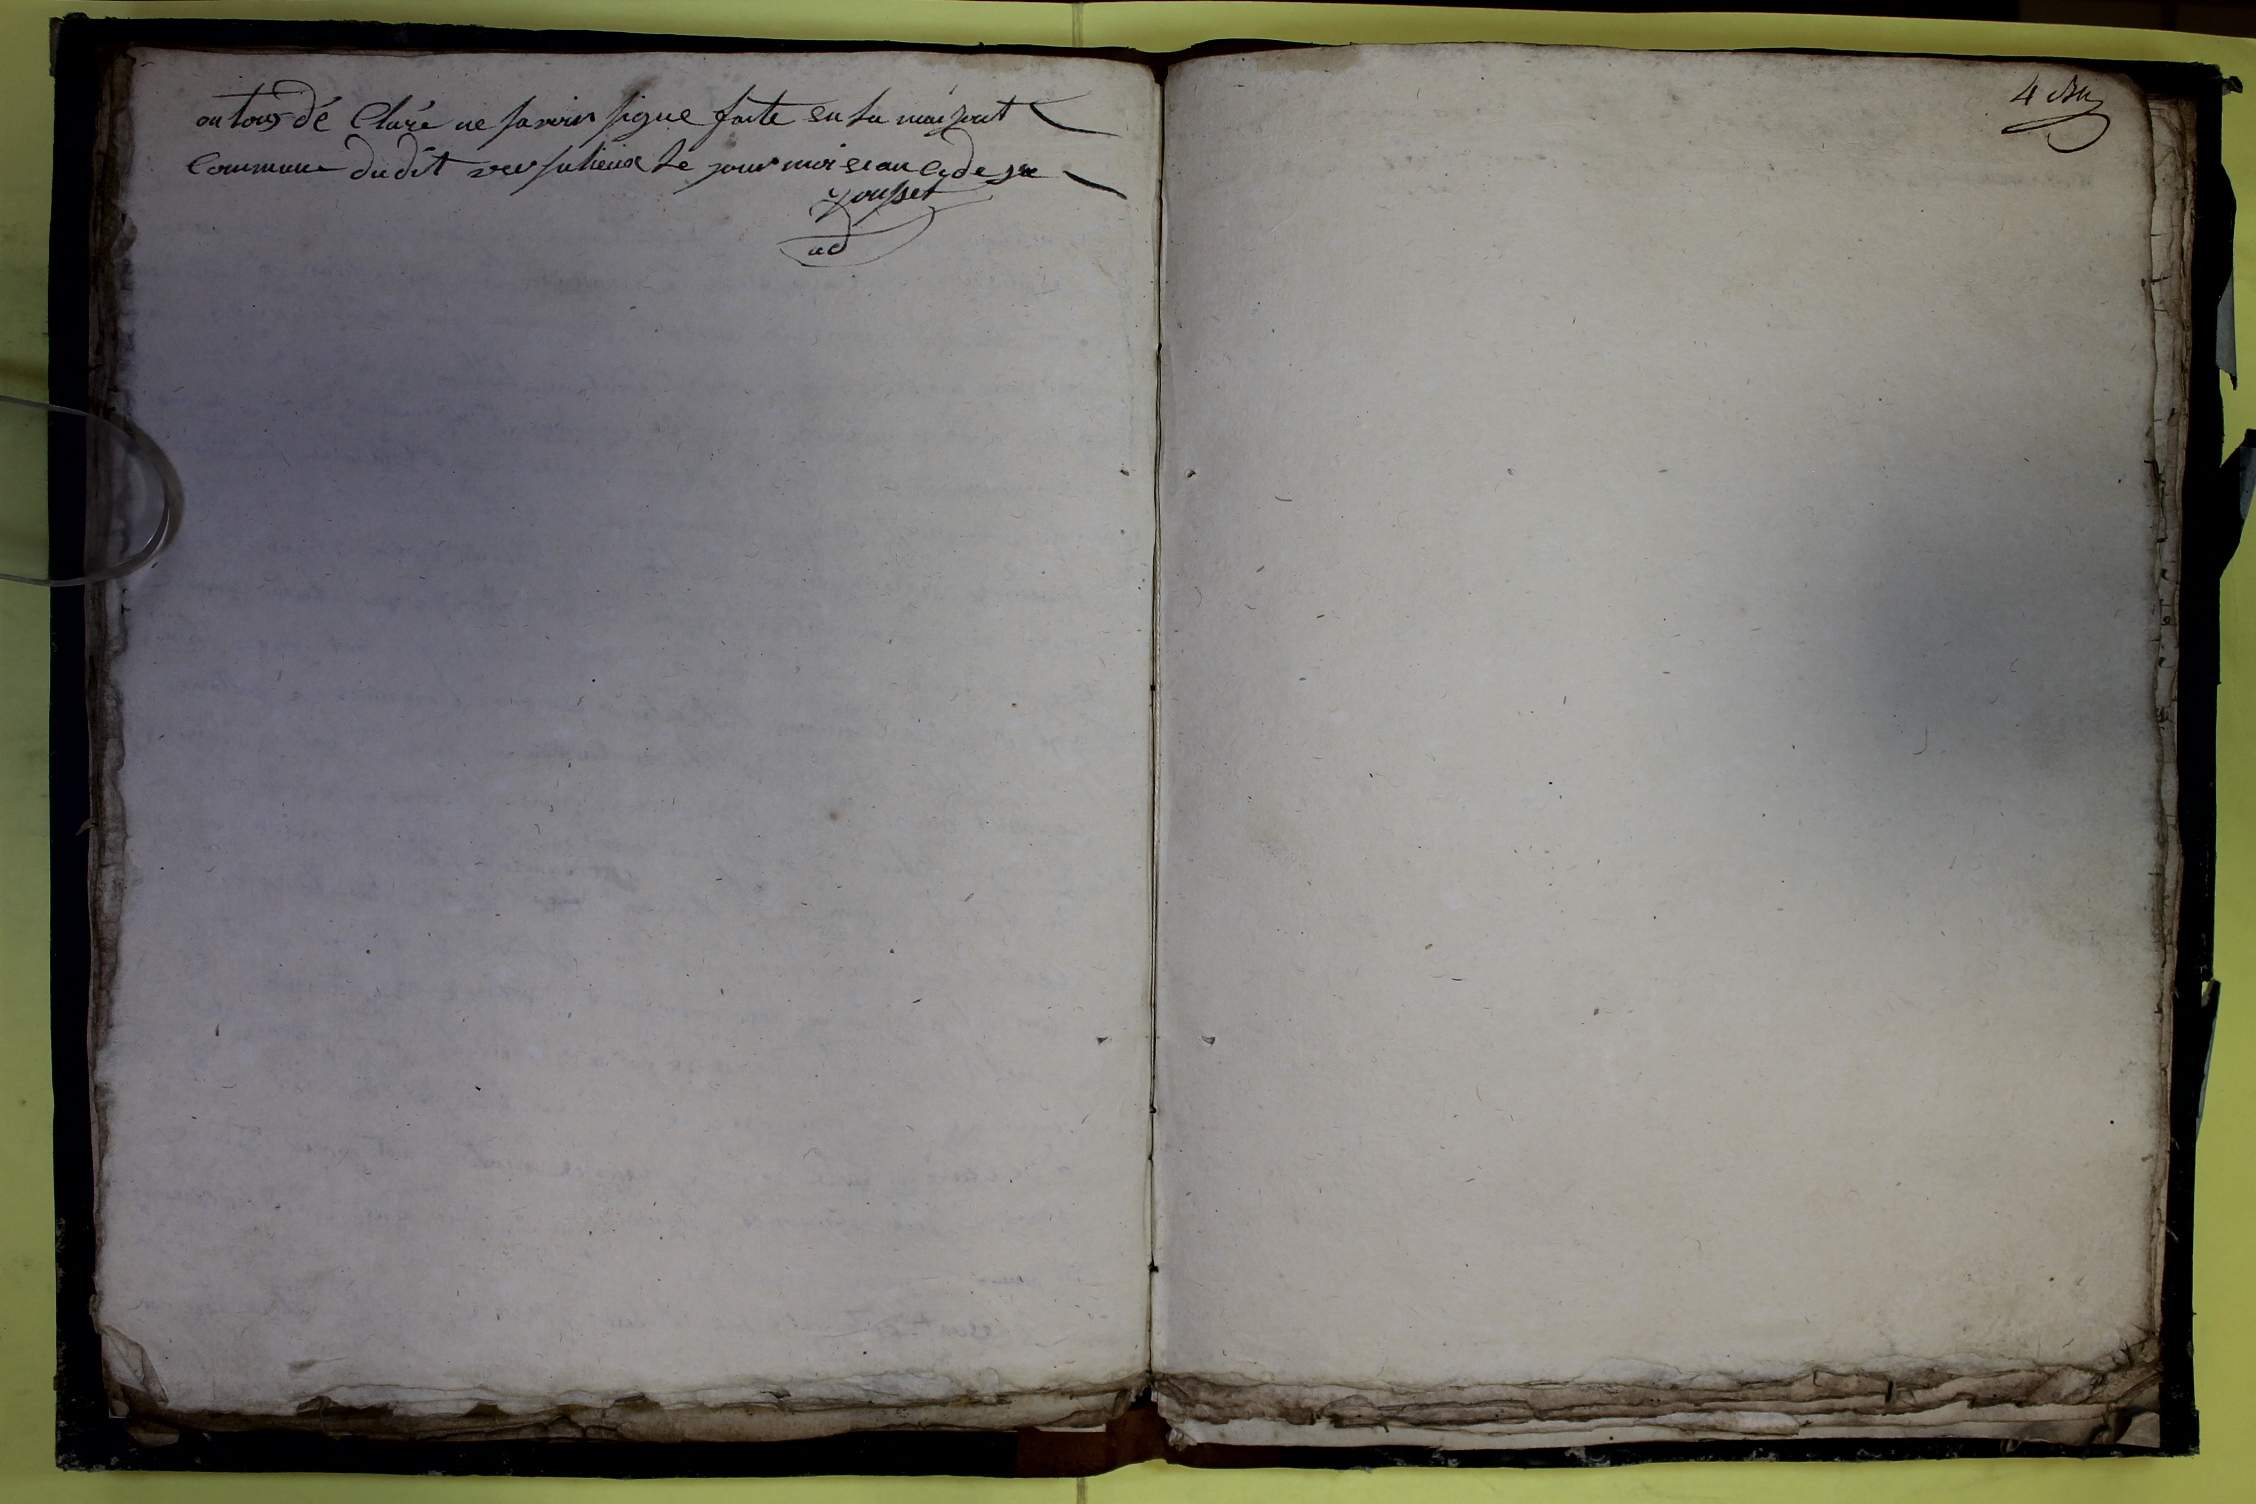 on tous dé Claré ne savoir signe faite en la maizont
Commune du dit verjulieux le jour moi se an cy de sue
Pousset
ad
4